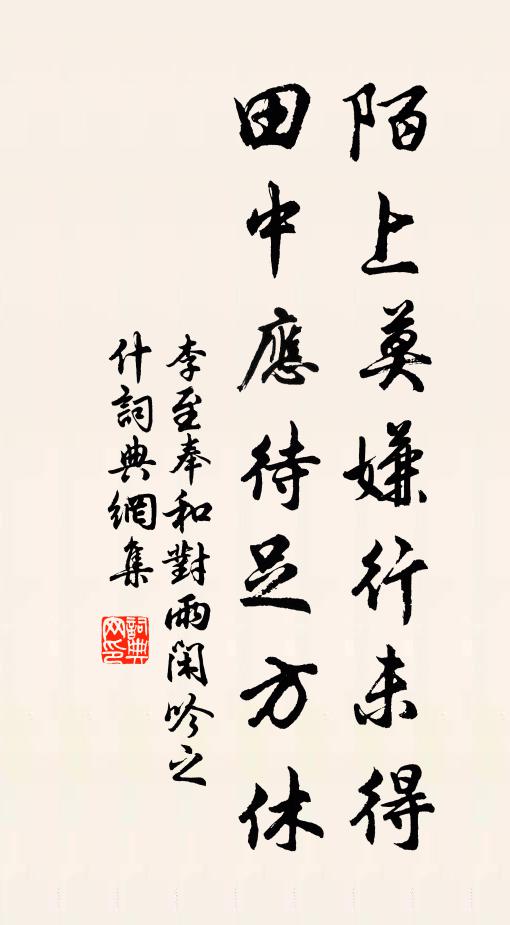 陌上莫嫌行未得
田中應待足方休
李至奉和對雨閑吟之
什詞典網集
詞典网印